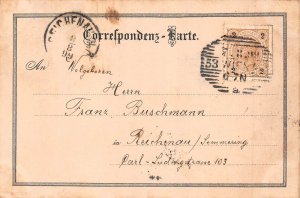 REICHENAU
8
8
99
Correspondenz-Karte.
2 2
53 WIEN
97.N
An Wolgeboren
Herrn
Franz Buschmann
in Reichenau / Semmering
Carl-Ludwigstrasse 103